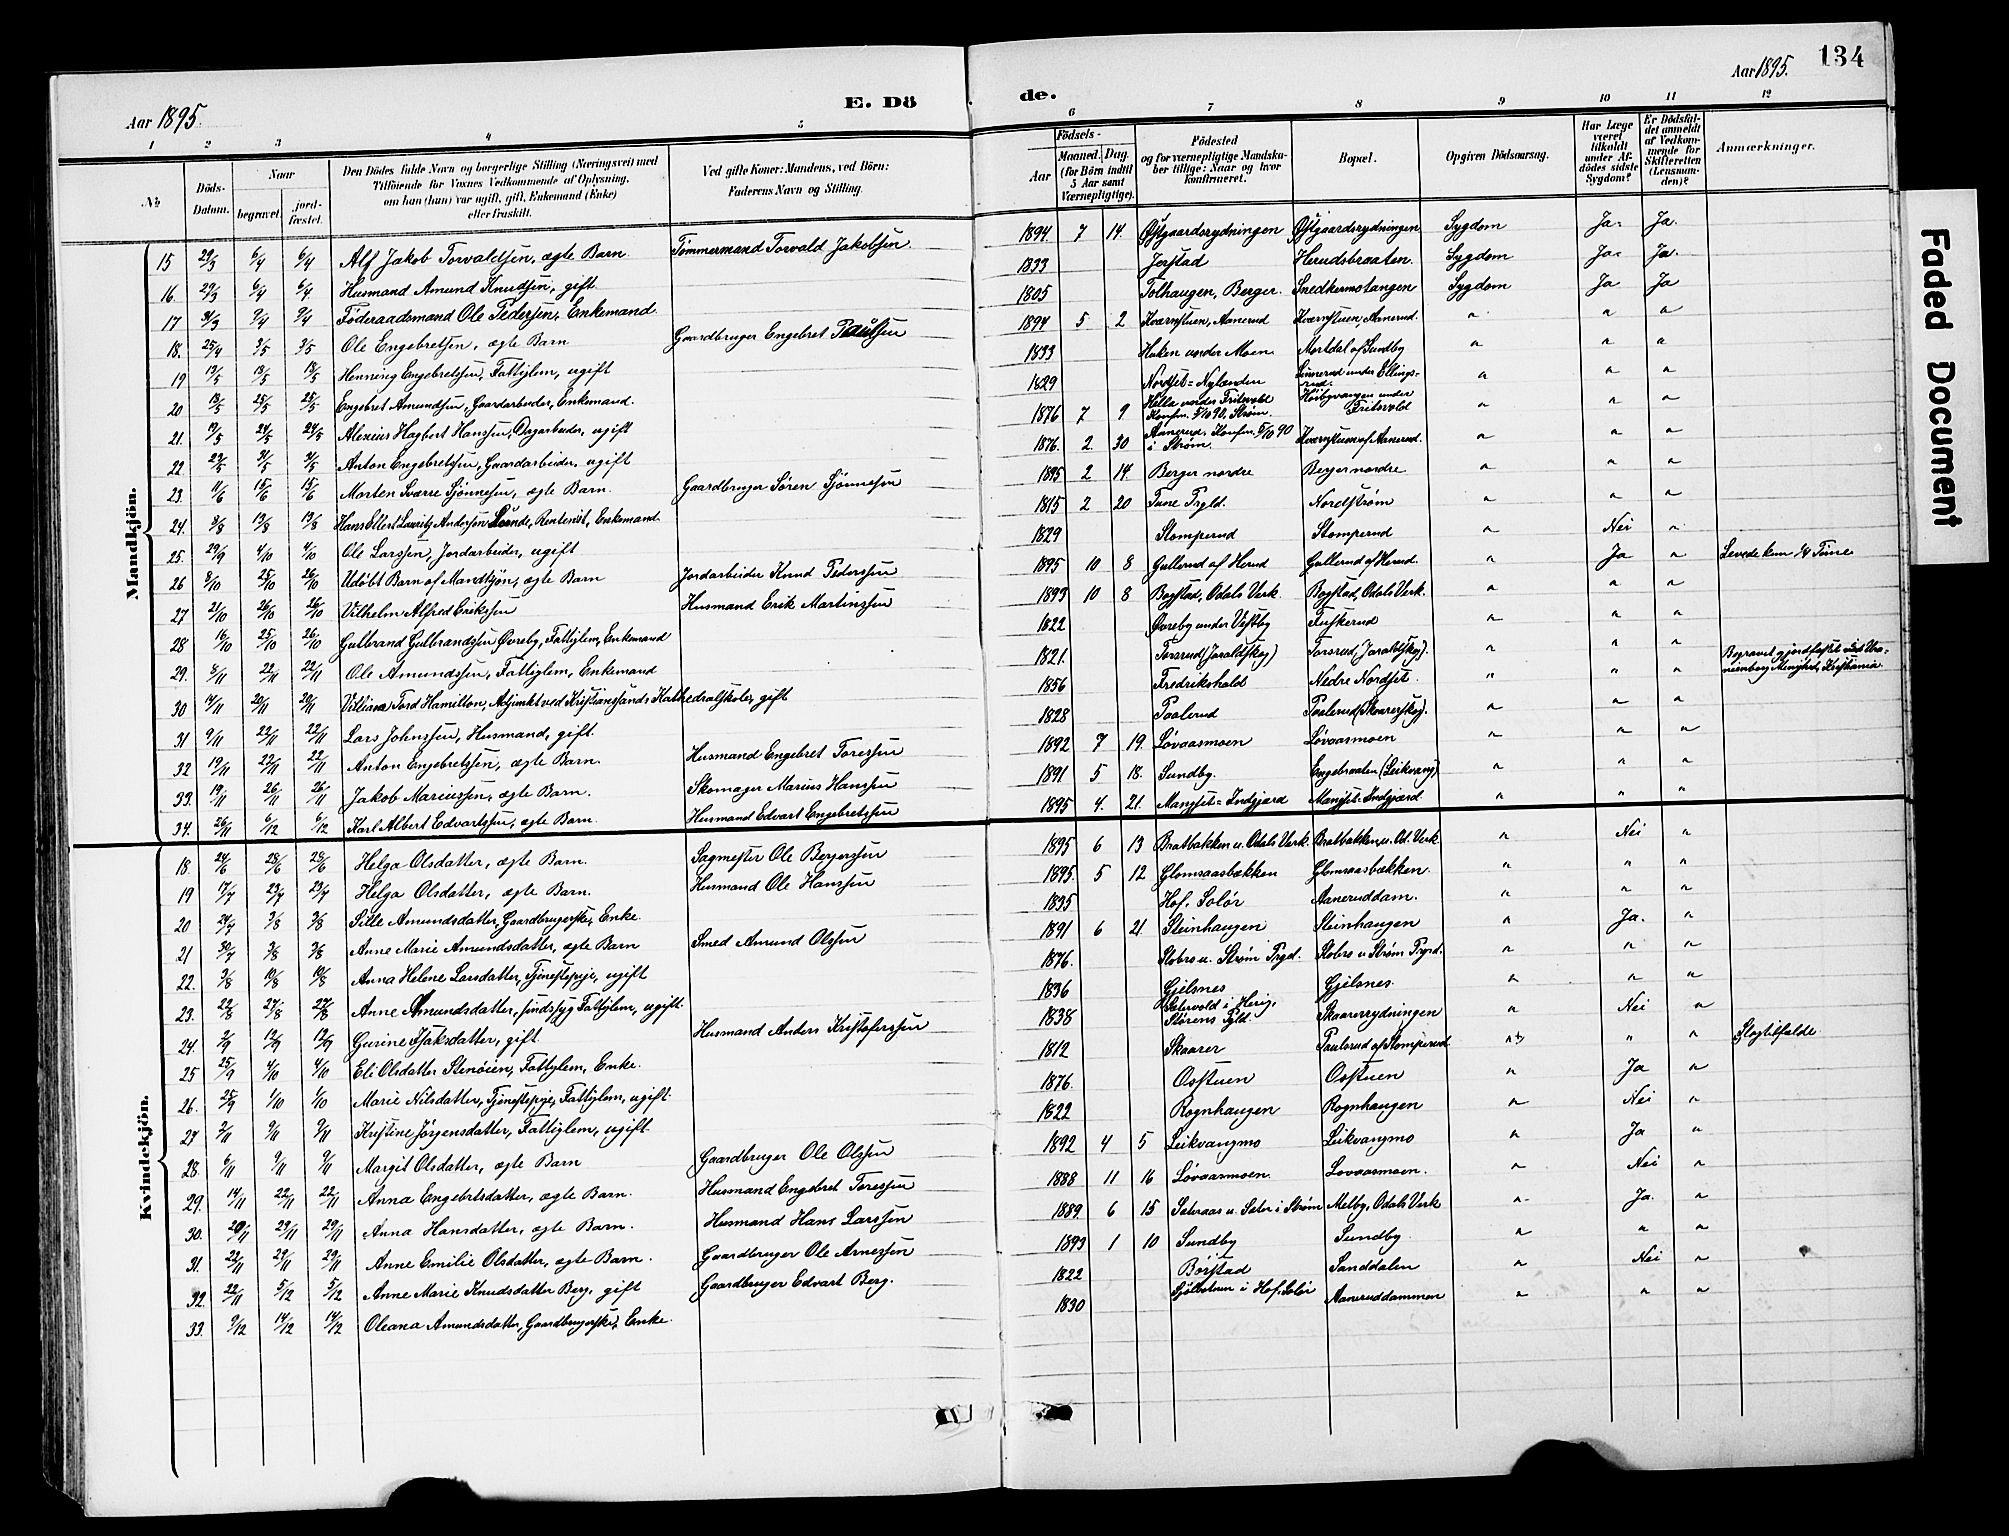 134
Aar 1895.
Aar 1895.
E. Dö
de.
1 2 3 4 5
6 7 8 9 10 11 12
No
Döds-Datum.
Naar
begravet.
jord-fæstet.
Den Dödes fulde Navn og borgerlige Stilling (Næringsvei) med
Tilföiende for Voxnes Vedkommende af Oplysning,
om han (hun) var ugift, gift, Enkemand (Enke)
eller fraskilt.
Ved gifte Koner: Mandens, ved Börn:
Faderens Navn og Stilling.
Födsels-
Aar
Maaned. Dag.
(for Börn indtil
5 Aar samt
Værnepligtige).
Födested
og for værnepligtige Mandska-
ber tillige: Naar og hvor
konfirmeret.
Bopæl.
Opgiven Dödsaarsag.
Har Læge
været
tilkaldt
under Af-
dödes sidste
Sygdom?
Er Dödsfal-
det anmeldt
af Vedkom-
mende for
Skifteretten
(Lensman-
den)?
Anmærkninger.
Mandkjön.
15 29/3 6/4 6/4 Alf Jakob Torvaldsen, ægte Barn. Tömmermand Torvald Jakobsen. 1894 7 14 Östgaardsrydningen Östgaardsrydningen Sygdom Ja. Ja.
16. 29/3 6/4 6/4 Husmand Amund Knudsen, gift. 1833 Jerstad Herudsbraaten. Sygdom Ja. Ja.
17 31/3 9/4 9/4 Föderaadsmand Ole Pedersen, Enkemand. 1805 Tolhaugen, Berger. Snedkermotangen Sygdom Ja Ja
18. 25/4 3/5 3/5 Ole Engebretsen, ægte Barn Gaardbruger Engebret Paulsen 1894 5 2 Kværnstuen, Aanerud Kværnstuen, Aanerud. " " "
19 13/5 18/5 18/5 Henning Engebretsen, Fattiglem, ugift 1833 Haken under Moen. Mortdal af Sundby " " "
20 18/5 25/5 25/5 Engebret Amundsen, Gaardarbeider, Enkemand. 1829 Nordset = Nylænden Linnerud under Ellings-rud. " " "
21. 19/5 24/5 24/5 Alexius Hagbert Hansen, Dagarbeider, ugift 1876 7 9 Hilla under Fritsvold Konfm. 5/10 90, Ström. Höibyvangen under Fritsvold " " "
22 29/5 31/5 31/5 Anton Engebretsen, Gaardarbeider, ugift 1876. 2 30 Aanerud. Konfm. 5/10 90 i Ström. Kværnstuen af Aanerud. " " "
23. 11/6 15/6 15/6 Morten Sverre Sjönnesen, ægte Barn. Gaardbruger Sören Sjönnesen 1895 2 14. Berger nordre Berger nordre " " "
24. 8/8 13/8 13/8 Hans Ellert Lauritz Andersen Lunde, Renterist, Enkemand. 1815 2 20 Tune Prgld. Nordström " " "
25. 29/9 4/10 4/10 Ole Larssen, Jordarbeider, ugift 1829 Stomperud Stomperud " Nei "
26 8/10 25/10 26/10 Udöbt Barn af Mandkjön, ægte Barn Jordarbeider Knud Pedersen 1895 10 8 Gullerud af Herud Gullerud af Herud. " Ja " Levede kun 1/4 Time
27 21/10 26/10 26/10 Vilhelm Alfred Eriksen Husmand Erik Martinssen 1893 10 8 Bogstad, Odals Verk. Bogstad, Odals Verk. " " "
28 16/10 25/10 26/10 Gulbrand Gulbrandsen Övreby, Fattiglem, Enkemand 1822 Övreby under Vestby Fuskerud " " "
29. 8/11 22/11 22/11 Ole Amundssen, Fattiglem, Enkemand 1821. Torsrud (Jaraldskog) Torsrud, (Jaraldskog). " " "
30 14/11 20/11 20/11 Villiam Tord Hamilton, Adjunkt ved Kristianssands Kathedralskole, gift 1856 Fredrikshald Nedre Nordset. " " " Begravet og jordfæstet ved Ura-nienborg Menighed, Kristiania
31 9/11 22/11 22/11 Lars Johnssen, Husmand, gift. 1828 Paalerud Paalerud (Skaarerskog). " " "
32 19/11 22/11 22/11 Anton Engebretsen, ægte Barn. Husmand Engebret Toresen 1892 7 19. Lövaasmoen Lövaasmoen " " "
33. 19/11 26/11 26/11 Jakob Mariussen, ægte Barn. Skomager Marius Hansen 1891 5 18. Sundby. Engebraaten (Leikvang) " " "
34. 26/11 6/12 6/12 Karl Albert Edvartsen, ægte Barn. Husmand Edvart Engebretsen 1895 4. 21. Mangset = Indgjærd Mangset = Indgjærd " " "
Kvindekjön.
18. 24/6 28/6 28/6 Helga Olsdatter, ægte Barn. Sagmester Ole Bergersen 1895 6 13 Bratbakken u. Odals Verk. Bratbakken u. Od. Verk " Nei "
19 17/7 23/7 23/7 Helga Olsdatter, ægte Barn. Husmand Ole Hanssen 1895. 5 12 Glomsaasbækken Glomsaasbækken. " " "
20 24/7 3/8 3/8 Sille Amundsdatter, Gaardbrugerske, Enke. 1835 Hof, Solör Aaneruddam. " " "
21 30/7 3/8 3/8 Anne Marie Amundsdatter, ægte Barn Smed Amund Olsen 1891 6 21 Steinhaugen Steinhaugen " Ja. "
22. 3/8 10/8 10/8 Anna Helene Larsdatter, Tjenestepige, ugift 1876. Slobro u. Ström Prgd. Slobro u Ström Prgd. " " "
23. 22/8 27/8 27/8 Anne Amundsdatter, sindssyg Fattiglem, ugift. 1836 Gjelsnes Gjelsnes. " " "
24. 7/9 13/9 13/9 Gurine Isaksdatter, gift. Husmand Anders Kristoferssen 1838 Sætervold i Herig, Störens Pgld. Skaarerrydningen " Nei "
25 25/9 4/10 4/10 Eli Olsdatter Stenöien, Fattiglem, Enke. 1812 Skaarer Paulsrud af Stomperud " " " Slagtilfælde
26. 25/9 1/10 1/10 Marie Nilsdatter, Tjenestepige, Fattiglem, ugift. 1876. Osstuen Osstuen " Ja "
27. 2/11 9/11 9/11 Kristine Jörgensdatter, Fattiglem, ugift. 1822 Rognhaugen Rognhaugen " Nei "
28. 6/11 9/11 9/11 Margit Olsdatter, ægte Barn Gaardbruger Ole Olsen 1892 4 5 Leikvangmo Leikvangmo " Ja "
29. 14/11 22/11 22/11 Anna Engebretsdatter, ægte Barn. Husmand Engebret Toresen 1888 11 16 Lövaasmoen. Lovaasmoen. " Nei "
30. 20/11 29/11 29/11 Anna Hansdatter, ægte Barn. Husmand Hans Larssen 1889. 6 15 Sæteraas u. Sæter i Ström Melby, Odals Verk " Ja. "
31. 22/11 29/11 29/11 Anne Emilie Olsdatter, ægte Barn. Gaardbruger Ole Arnessen 1893 1 10 Sundby Sundby. " " "
32. 22/11 5/12 5/12 Anne Marie Knudsdatter Berg, gift Gaardbruger Edvart Berg. 1822 Börstad Sanddalen " Nei "
33. 9/12 14/12 14/12 Oleana Amundsdatter, Gaardbrugerske, Enke. 1830 i Hof, Solör Aaneruddammen " " "
Faded Document